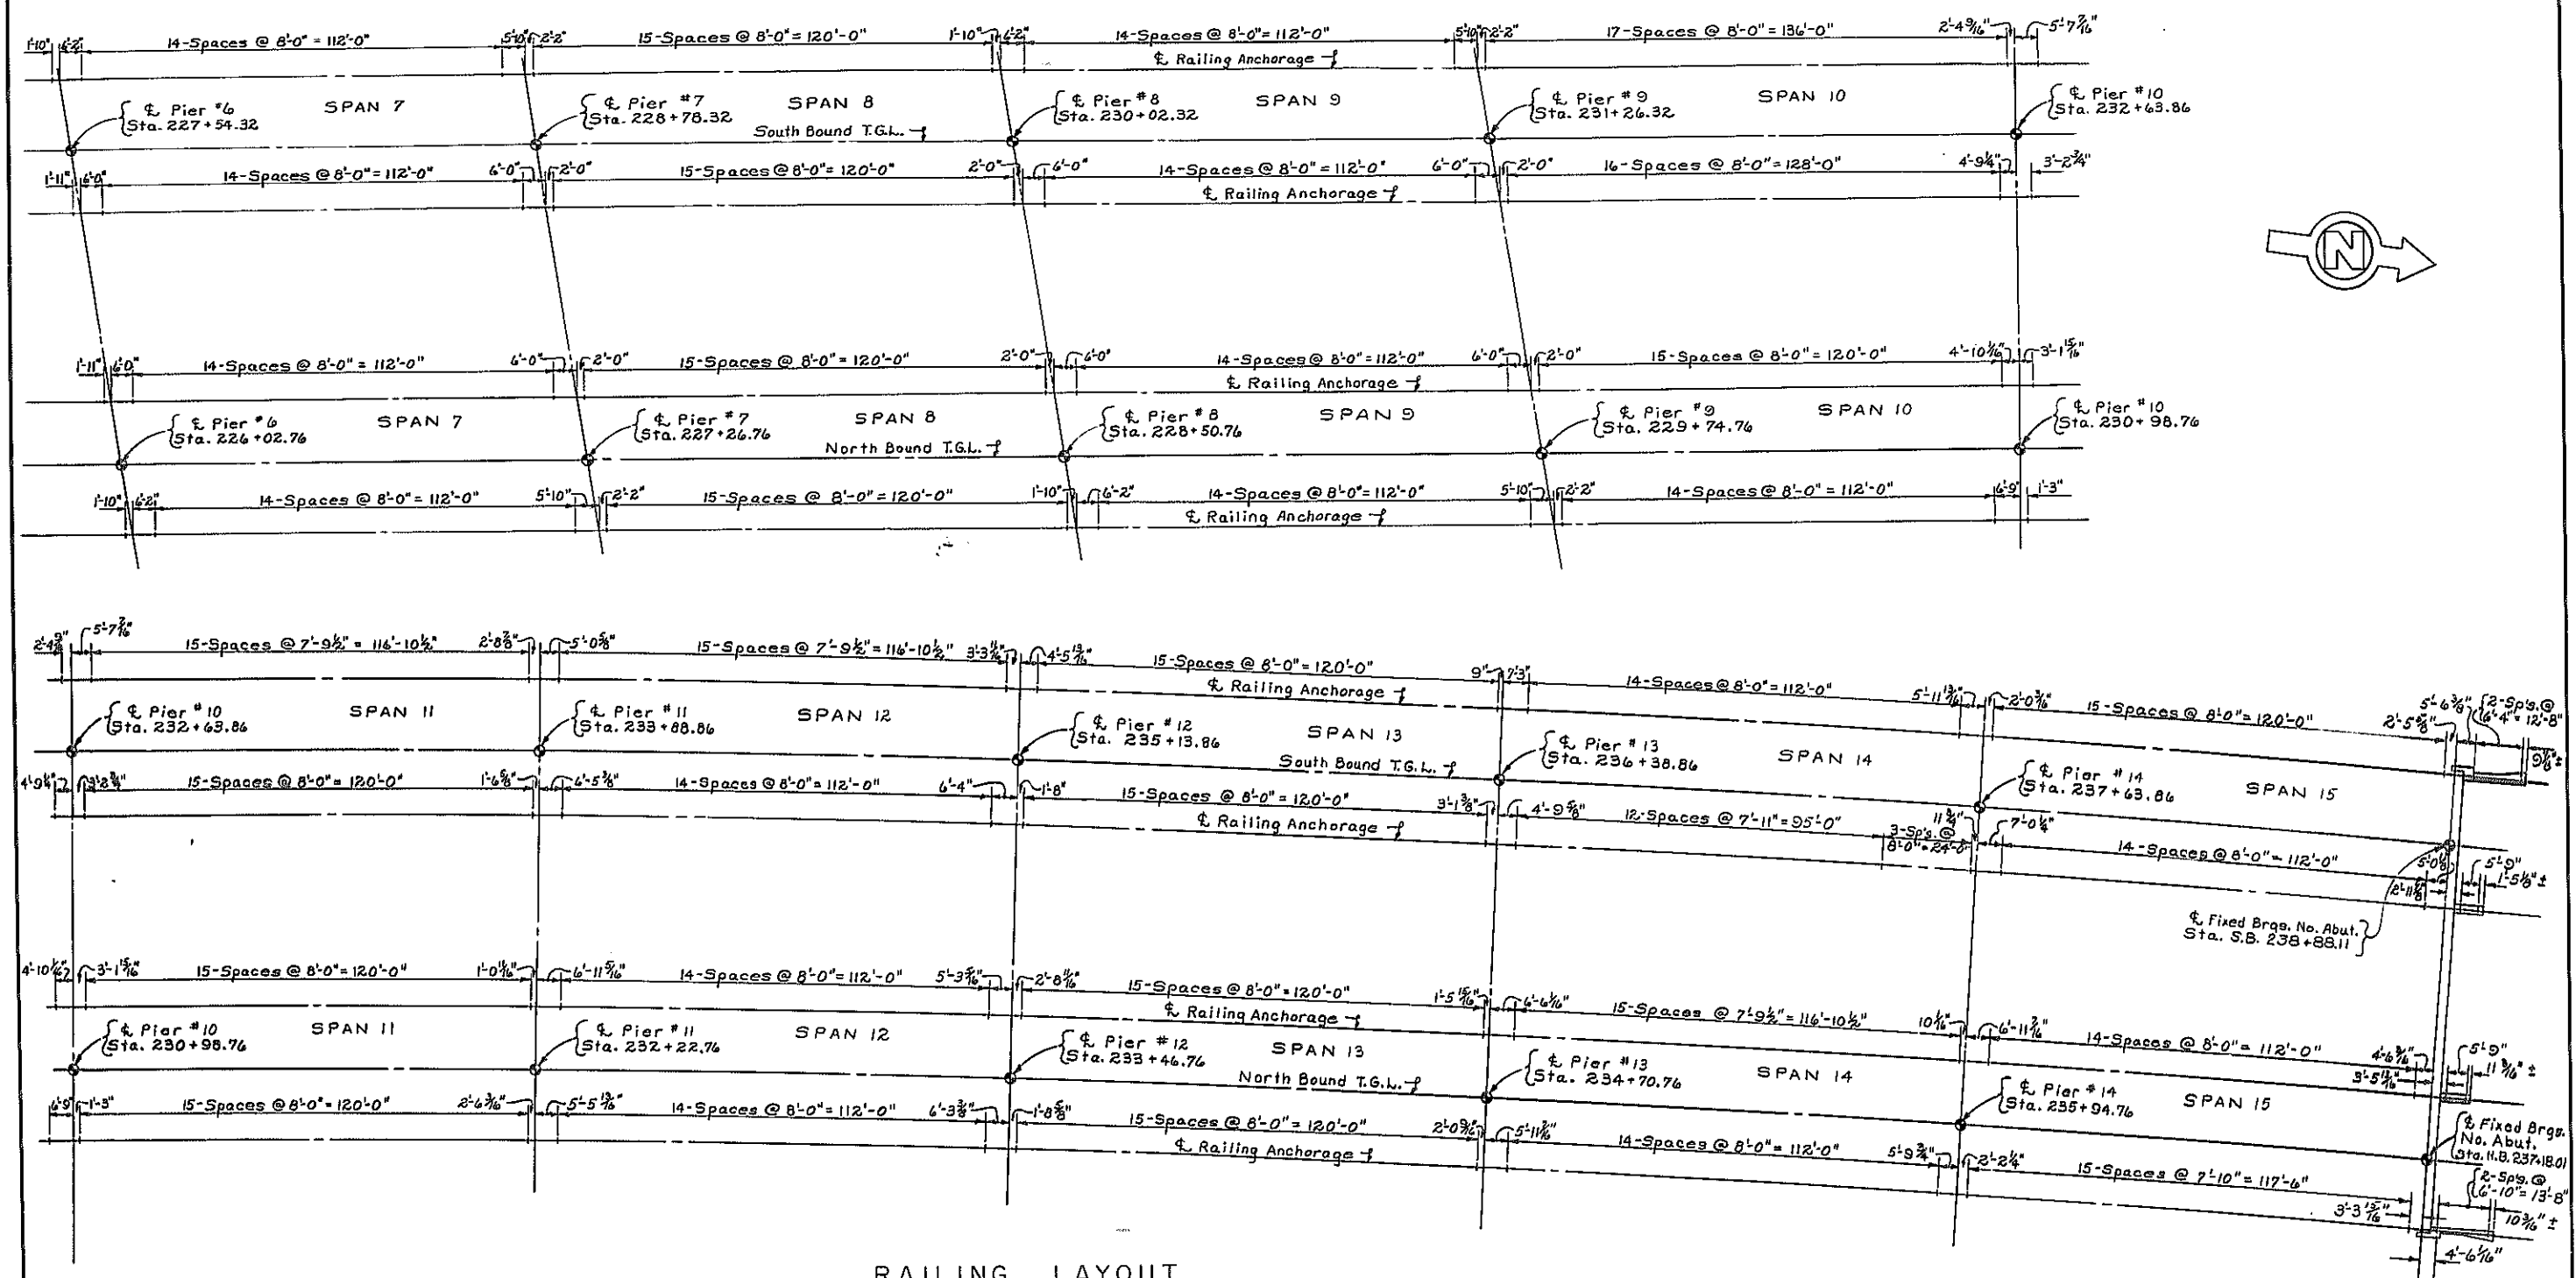 1'-10" 6'-2" 14-Spaces @ 8'-0" = 112'-0" 5'-10" 2'-2" 15-Spaces @ 8'-0" = 120'-0" 1'-10" 6'-2" 14-Spaces @ 8'-0" = 112'-0" 5'-10" 2'-2" 17-Spaces @ 8'-0" = 136'-0" 2'-4 9/16" 5'-7 7/16"
℄ Railing Anchorage
℄ Pier #6
Sta. 227+54.32
SPAN 7
℄ Pier #7
Sta. 228+78.32
SPAN 8
℄ Pier #8
Sta. 230+02.32
SPAN 9
℄ Pier #9
Sta. 231+26.32
SPAN 10
℄ Pier #10
Sta. 232+63.86
South Bound T.G.L.
1'-11" 6'-0" 14-Spaces @ 8'-0" = 112'-0" 6'-0" 2'-0" 15-Spaces @ 8'-0" = 120'-0" 2'-0" 6'-0" 14-Spaces @ 8'-0" = 112'-0" 6'-0" 2'-0" 16-Spaces @ 8'-0" = 128'-0" 4'-9 1/4" 3'-2 3/4"
℄ Railing Anchorage
N
1'-11" 6'-0" 14-Spaces @ 8'-0" = 112'-0" 6'-0" 2'-0" 15-Spaces @ 8'-0" = 120'-0" 2'-0" 6'-0" 14-Spaces @ 8'-0" = 112'-0" 6'-0" 2'-0" 15-Spaces @ 8'-0" = 120'-0" 4'-10 1/16" 3'-1 15/16"
℄ Railing Anchorage
℄ Pier #6
Sta. 226+02.76
SPAN 7
℄ Pier #7
Sta. 227+26.76
SPAN 8
℄ Pier #8
Sta. 228+50.76
SPAN 9
℄ Pier #9
Sta. 229+74.76
SPAN 10
℄ Pier #10
Sta. 230+98.76
North Bound T.G.L.
1'-10" 6'-2" 14-Spaces @ 8'-0" = 112'-0" 5'-10" 2'-2" 15-Spaces @ 8'-0" = 120'-0" 1'-10" 6'-2" 14-Spaces @ 8'-0" = 112'-0" 5'-10" 2'-2" 14-Spaces @ 8'-0" = 112'-0" 6'-9" 1'-3"
℄ Railing Anchorage
2'-4 9/16" 5'-7 7/16" 15-Spaces @ 7'-9 1/2" = 116'-10 1/2" 2'-8 7/8" 5'-0 5/8" 15-Spaces @ 7'-9 1/2" = 116'-10 1/2" 4'-5 13/16" 15-Spaces @ 8'-0" = 120'-0" 9" 7'-3" 14-Spaces @ 8'-0" = 112'-0" 5'-11 13/16" 2'-0 3/16" 15-Spaces @ 8'-0" = 120'-0" 2'-5 5/8" 5'-6 3/8" 2-Sp's. @ 6'-4" = 12'-8"
℄ Railing Anchorage
℄ Pier #10
Sta. 232+63.86
SPAN 11
℄ Pier #11
Sta. 233+88.86
SPAN 12
℄ Pier #12
Sta. 235+13.86
SPAN 13
℄ Pier #13
Sta. 236+38.86
SPAN 14
℄ Pier #14
Sta. 237+63.86
SPAN 15
South Bound T.G.L.
4'-9 1/4" 3'-2 3/4" 15-Spaces @ 8'-0" = 120'-0" 1'-6 5/8" 6'-5 3/8" 14-Spaces @ 8'-0" = 112'-0" 6'-4" 1'-8" 15-Spaces @ 8'-0" = 120'-0" 3'-1 3/8" 4'-9 5/8" 12-Spaces @ 7'-11" = 95'-0" 3-Sp's. @ 8'-0" = 24'-0" 11 3/4" 7'-0 1/4" 14-Spaces @ 8'-0" = 112'-0" 5'-0 1/8" 2'-11 7/8" 5'-9" 1'-5 1/8" ±
℄ Railing Anchorage
℄ Fixed Brgs. No. Abut.
Sta. S.B. 238+88.11
4'-10 1/16" 3'-1 15/16" 15-Spaces @ 8'-0" = 120'-0" 1'-0 11/16" 6'-11 5/16" 14-Spaces @ 8'-0" = 112'-0" 5'-3 5/16" 2'-8 11/16" 15-Spaces @ 8'-0" = 120'-0" 1'-5 15/16" 6'-6 1/16" 15-Spaces @ 7'-9 1/2" = 116'-10 1/2" 10 1/16" 6'-11 7/16" 14-Spaces @ 8'-0" = 112'-0" 5'-9"
℄ Railing Anchorage
℄ Pier #10
Sta. 230+98.76
SPAN 11
℄ Pier #11
Sta. 232+22.76
SPAN 12
℄ Pier #12
Sta. 233+46.76
SPAN 13
℄ Pier #13
Sta. 234+70.76
SPAN 14
℄ Pier #14
Sta. 235+94.76
SPAN 15
North Bound T.G.L.
℄ Fixed Brgs.
No. Abut.
Sta. N.B. 237+18.01
6'-9" 1'-3" 15-Spaces @ 8'-0" = 120'-0" 2'-6 3/16" 5'-5 13/16" 14-Spaces @ 8'-0" = 112'-0" 6'-3 3/8" 1'-8 5/8" 15-Spaces @ 8'-0" = 120'-0" 2'-0 9/16" 5'-11 7/16" 14-Spaces @ 8'-0" = 112'-0" 5'-9 3/4" 2'-2 1/4" 15-Spaces @ 7'-10" = 117'-6" 3'-3 15/16" 2-Sp's. @ 6'-10" = 13'-8" 10 3/16" ±
℄ Railing Anchorage
4'-6 1/16"
RAILING LAYOUT